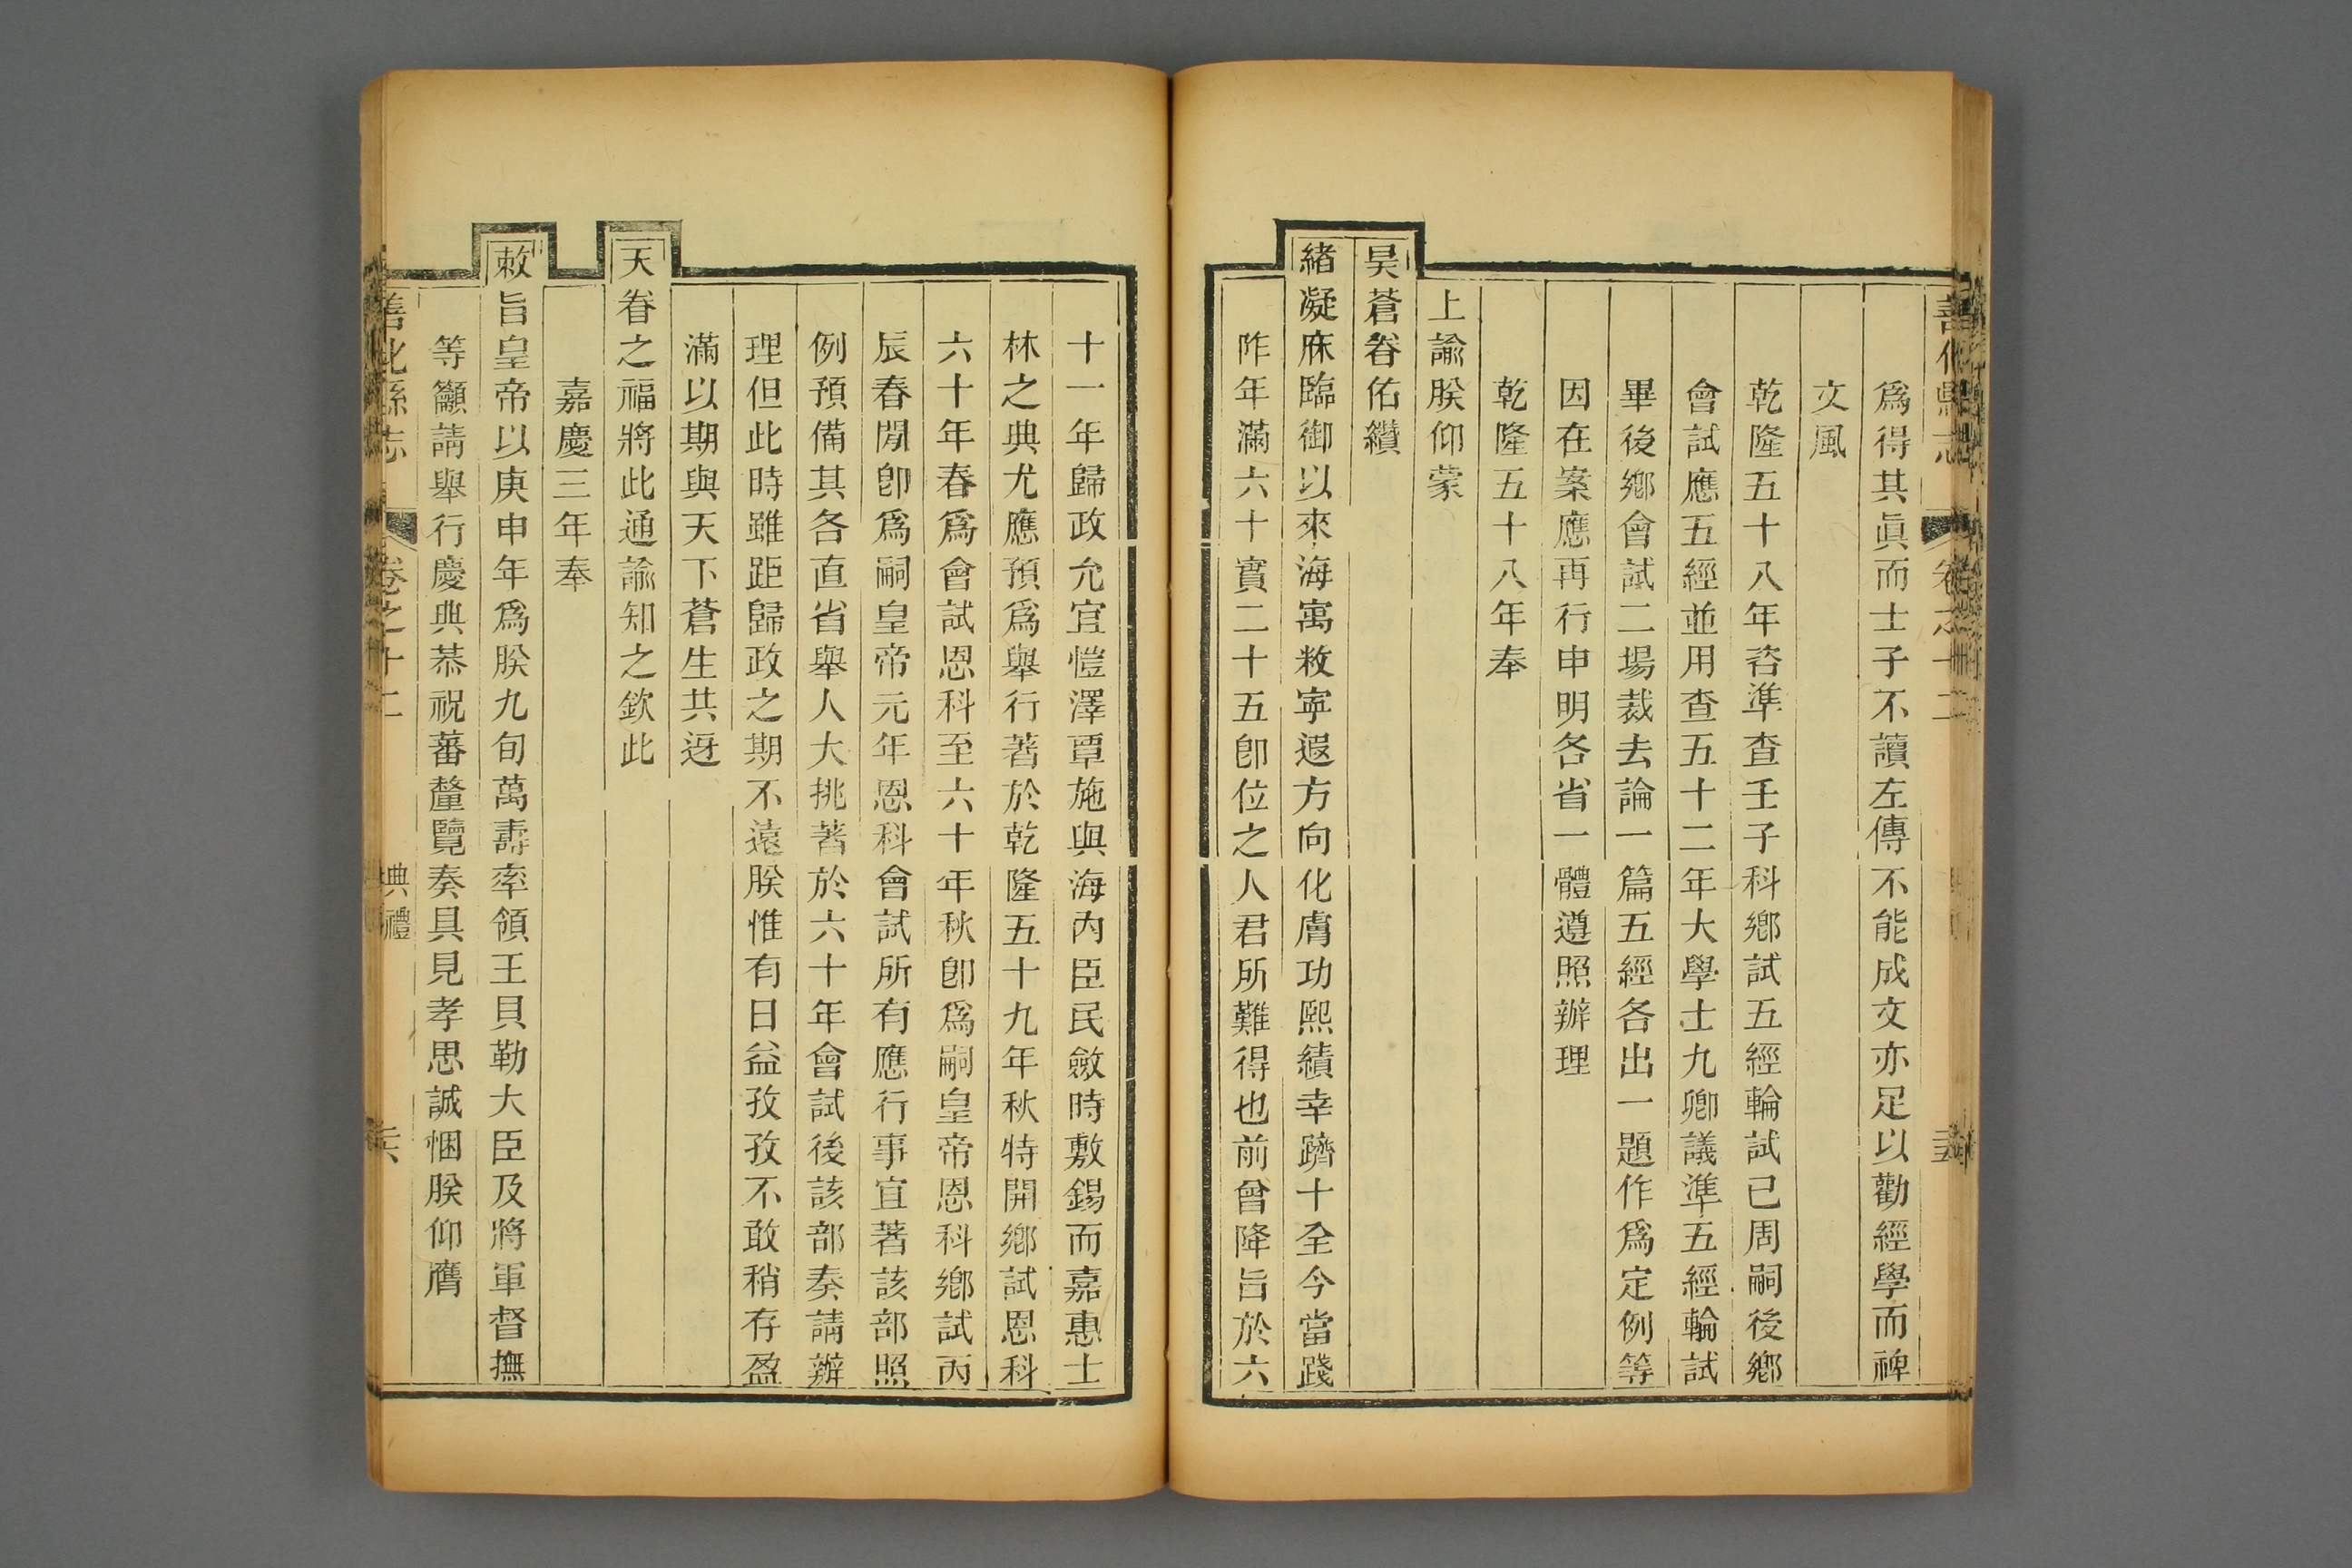 善化縣志 卷之十二
爲得其眞而士子不讀左傳不能成文亦足以勸經學而裨
文風
乾隆五十八年咨準查壬子科鄉試五經輪試已周嗣後鄉
會試應五經並用查五十二年大學士九卿議準五經輪試
畢後鄉會試二場裁去論一篇五經各出一題作爲定例等
因在案應再行申明各省一體遵照辦理
乾隆五十八年奉
上諭朕仰蒙
昊蒼眷佑纘
緒凝庥臨御以來海寓敉寧遐方向化膚功熙績幸躋十全今當踐
阼年滿六十實二十五卽位之人君所難得也前曾降旨於六
十一年歸政允宜愷澤覃施與海內臣民斂時敷錫而嘉惠士
林之典尤應預爲舉行著於乾隆五十九年秋特開鄉試恩科
六十年春爲會試恩科至六十年秋卽爲嗣皇帝恩科鄉試丙
辰春閒卽爲嗣皇帝元年恩科會試所有應行事宜著該部照
例預備其各直省舉人大挑著於六十年會試後該部奏請辦
理但此時雖距歸政之期不遠朕惟有日益孜孜不敢稍存盈
滿以期與天下蒼生共迓
天眷之福將此通諭知之欽此
嘉慶三年奉
敕旨皇帝以庚申年爲朕九旬萬壽率領王貝勒大臣及將軍督撫
等籲請舉行慶典恭祝蕃釐覽奏具見孝思誠悃朕仰膺
善化縣志 卷之十二 典禮 六